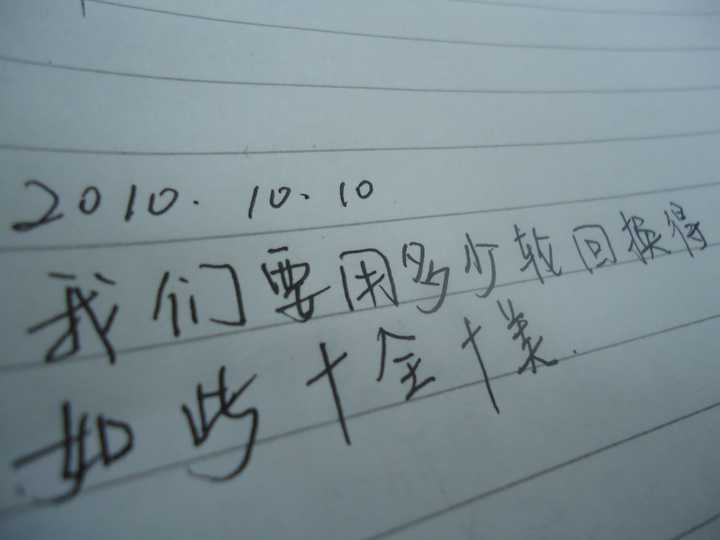 2010.10.10
我们要用多少轮回换得
如此十全十美.